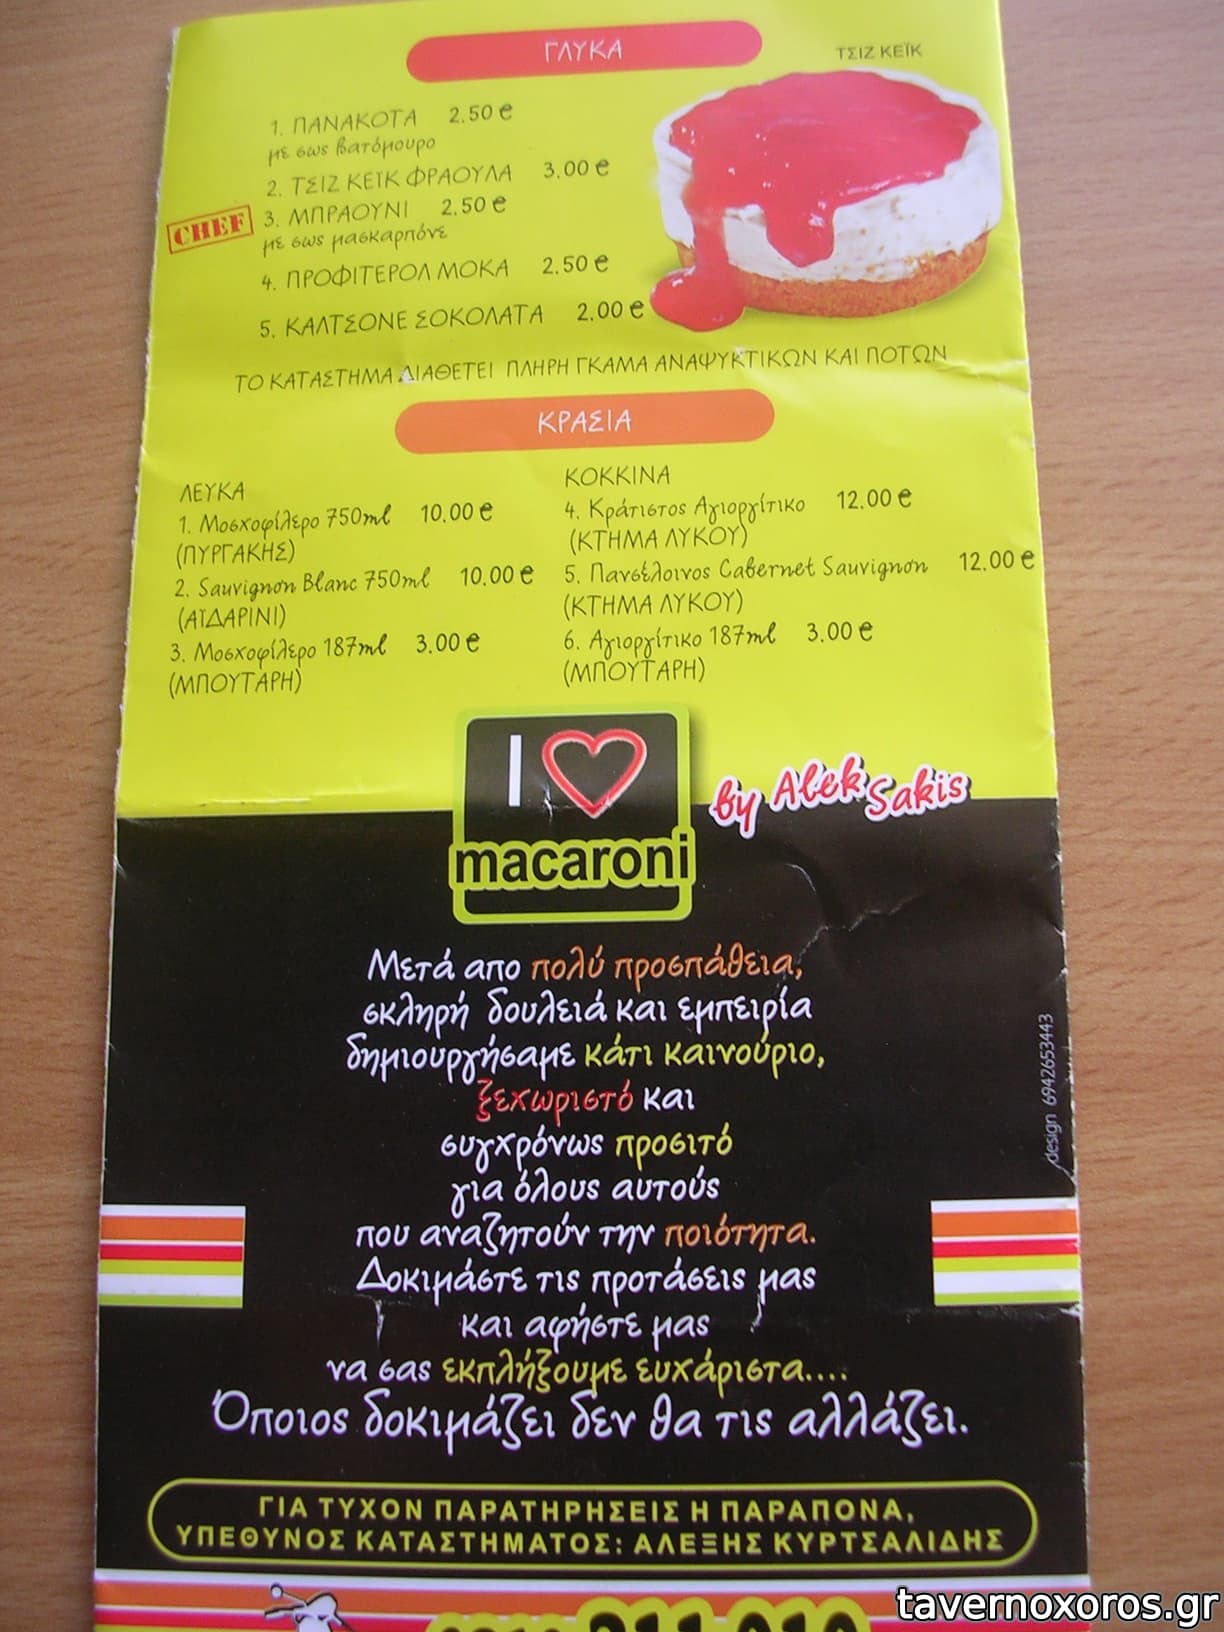 ΓΛΥΚΑ
ΤΣΙΖ ΚΕΪΚ
1. ΠΑΝΑΚΟΤΑ 2.50 €
με σως βατόμουρο
2. ΤΣΙΖ ΚΕΪΚ ΦΡΑΟΥΛΑ 3.00 €
CHEF 3. ΜΠΡΑΟΥΝΙ 2.50 €
με σως μασκαρπόνε
4. ΠΡΟΦΙΤΕΡΟΛ ΜΟΚΑ 2.50 €
5. ΚΑΛΤΣΟΝΕ ΣΟΚΟΛΑΤΑ 2.00 €
ΤΟ ΚΑΤΑΣΤΗΜΑ ΔΙΑΘΕΤΕΙ ΠΛΗΡΗ ΓΚΑΜΑ ΑΝΑΨΥΚΤΙΚΩΝ ΚΑΙ ΠΟΤΩΝ
ΚΡΑΣΙΑ
ΛΕΥΚΑ
1. Μοσχοφίλερο 750ml 10.00 €
(ΠΥΡΓΑΚΗΣ)
2. Sauvignon Blanc 750ml 10.00 €
(ΑΪΔΑΡΙΝΙ)
3. Μοσχοφίλερο 187ml 3.00 €
(ΜΠΟΥΤΑΡΗ)
ΚΟΚΚΙΝΑ
4. Κράτιστος Αγιοργίτικο 12.00 €
(ΚΤΗΜΑ ΛΥΚΟΥ)
5. Πανσέλοινος Cabernet Sauvignon 12.00 €
(ΚΤΗΜΑ ΛΥΚΟΥ)
6. Αγιοργίτικο 187ml 3.00 €
(ΜΠΟΥΤΑΡΗ)
I
macaroni
by Alek Sakis
Μετά απο πολύ προσπάθεια,
σκληρή δουλειά και εμπειρία
δημιουργήσαμε κάτι καινούριο,
ξεχωριστό και
συγχρόνως προσιτό
για όλους αυτούς
που αναζητούν την ποιότητα.
Δοκιμάστε τις προτάσεις μας
και αφήστε μας
να σας εκπλήξουμε ευχάριστα....
Όποιος δοκιμάζει δεν θα τις αλλάζει.
design 6942653443
ΓΙΑ ΤΥΧΟΝ ΠΑΡΑΤΗΡΗΣΕΙΣ Η ΠΑΡΑΠΟΝΑ,
ΥΠΕΘΥΝΟΣ ΚΑΤΑΣΤΗΜΑΤΟΣ: ΑΛΕΞΗΣ ΚΥΡΤΣΑΛΙΔΗΣ
tavernoxoros.gr